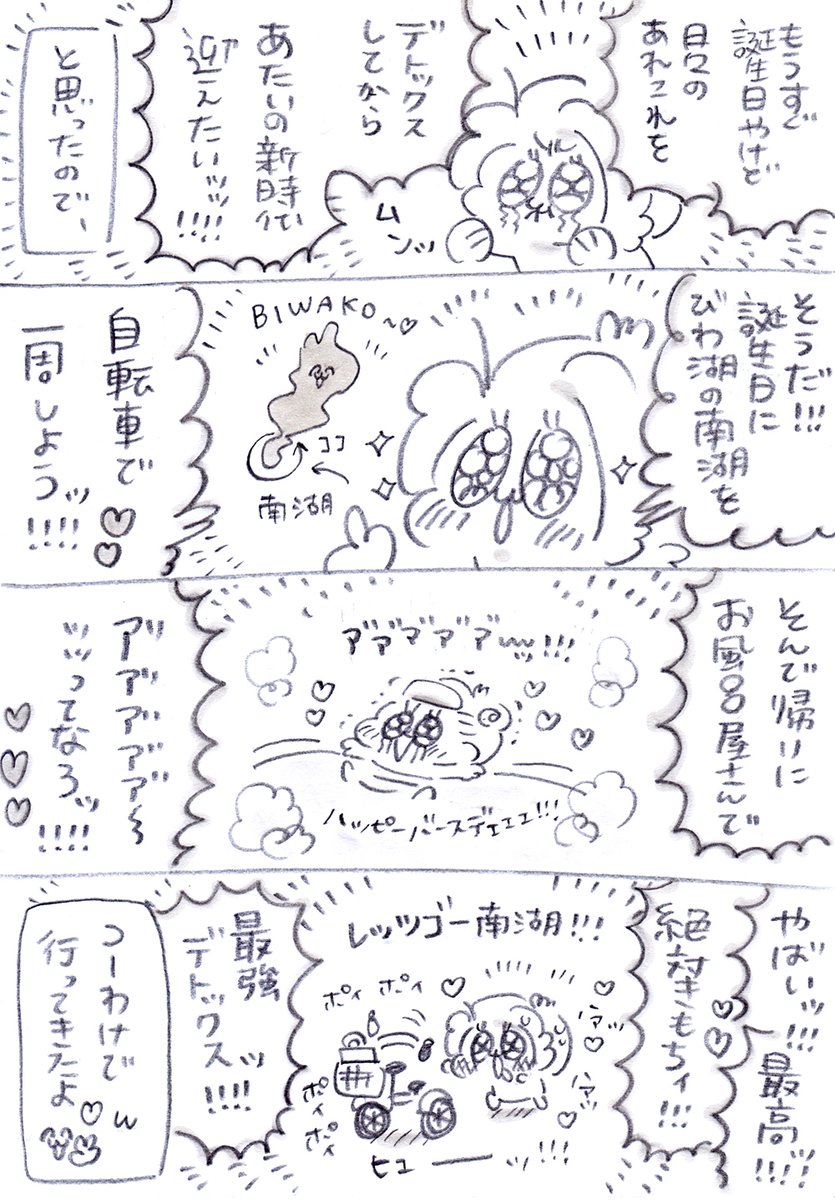 もうすぐ
誕生日やけど
日々の
あれこれを
デトックス
してから
あたいの新時代
迎えたいッッ!!!!
ムンッッ
と思ったので、
そうだ!!!
誕生日に
びわ湖の南湖を
BIWAKO~♡
ココ
南湖
自転車で♡♡
一周しようッ!!!!
そんで帰りに
お風呂屋さんで
ア゛ア゛マ゛ア゛ア゛wッ!!!
ハッピーバースデェェェ!!!
ア゛ア゛ア゛ア゛ア゛~
ッッってなろッ!!!!
やばいッ!!!
最高ッ!!!!
絶対きもちィ!!!
レッツゴー南湖!!!
ポィ ポィ
ハァッ
ハァッ
ポィ
ポィ
ヒューーッ!!!
最強
デトックスッ!!!!
つーわけで
行ってきたよ♡w